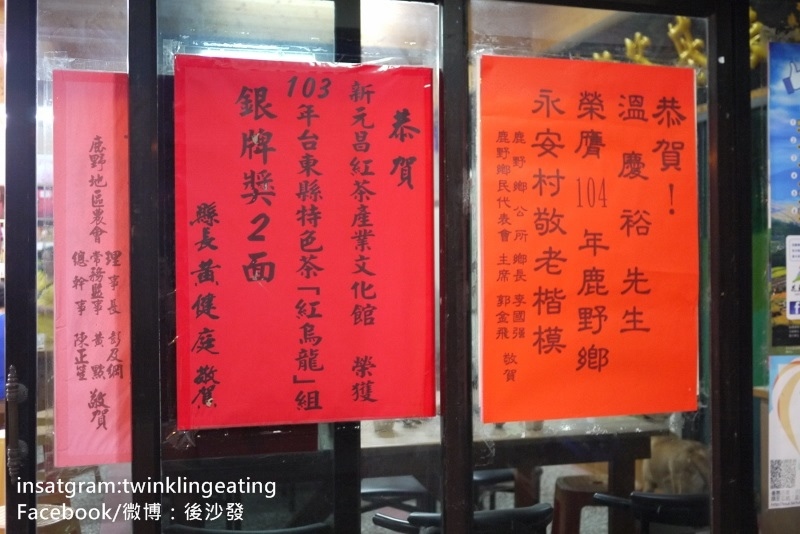 恭賀！
溫慶裕先生
榮膺104年鹿野鄉
永安村敬老楷模
鹿野鄉公所 鄉長 李國強
鹿野鄉民代表會 主席 郭金飛 敬賀
恭賀
新元昌紅茶產業文化館 榮獲
103年台東縣特色茶「紅烏龍」組
銀牌獎2面
縣長 黃健庭 敬賀
鹿野地區農會
理事長
常務監事 黃
總幹事 陳正
敬賀
insatgram:twinklingeating
Facebook/微博：後沙發